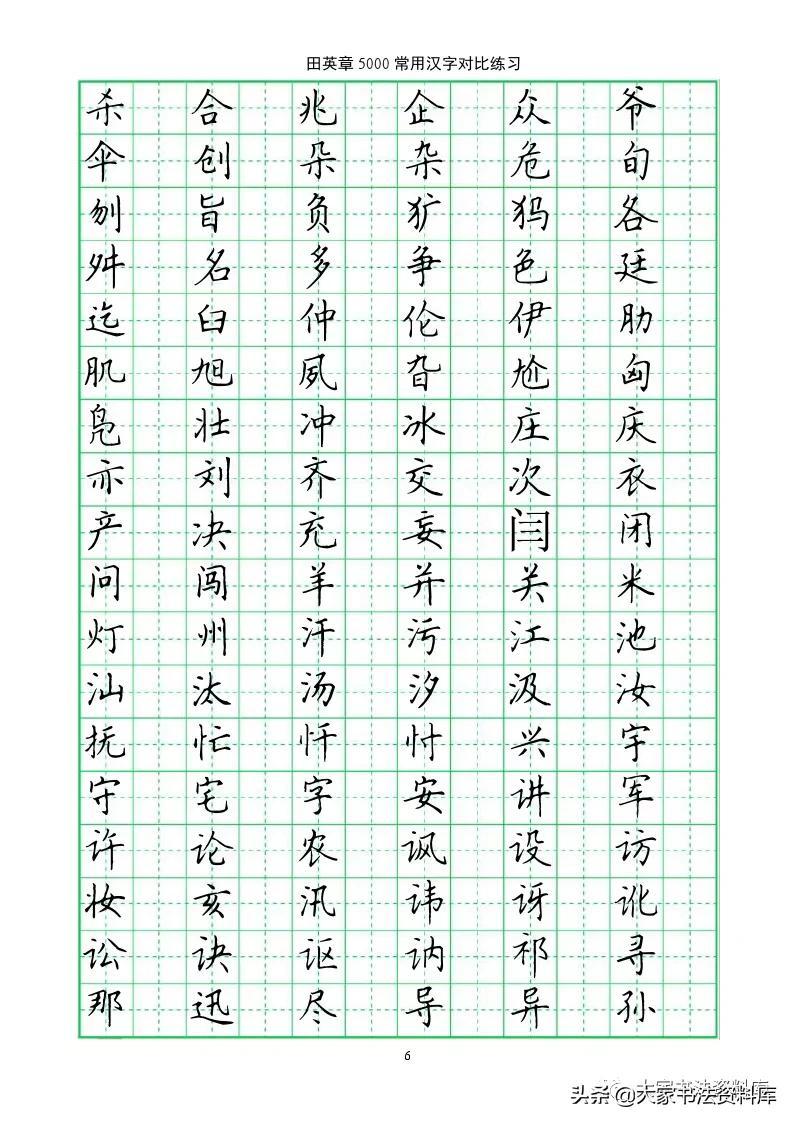 田英章 5000 常用汉字对比练习
杀 合 兆 企 众 爷
伞 创 朵 杂 危 旬
刎 旨 负 犷 犸 各
舛 名 多 争 色 廷
迄 臼 仲 伦 伊 肋
肌 旭 夙 旮 尬 匈
凫 壮 冲 冰 庄 庆
亦 刘 齐 交 次 衣
产 决 充 妄 闫 闭
问 闯 羊 并 关 米
灯 州 汗 污 江 池
汕 汰 汤 汐 汲 汝
抚 忙 忏 忖 兴 宇
守 宅 字 安 讲 军
许 论 农 讽 设 访
妆 亥 汛 讳 讶 讹
讼 诀 讴 讷 祁 寻
那 迅 尽 导 异 孙
6
头条 @大家书法资料库